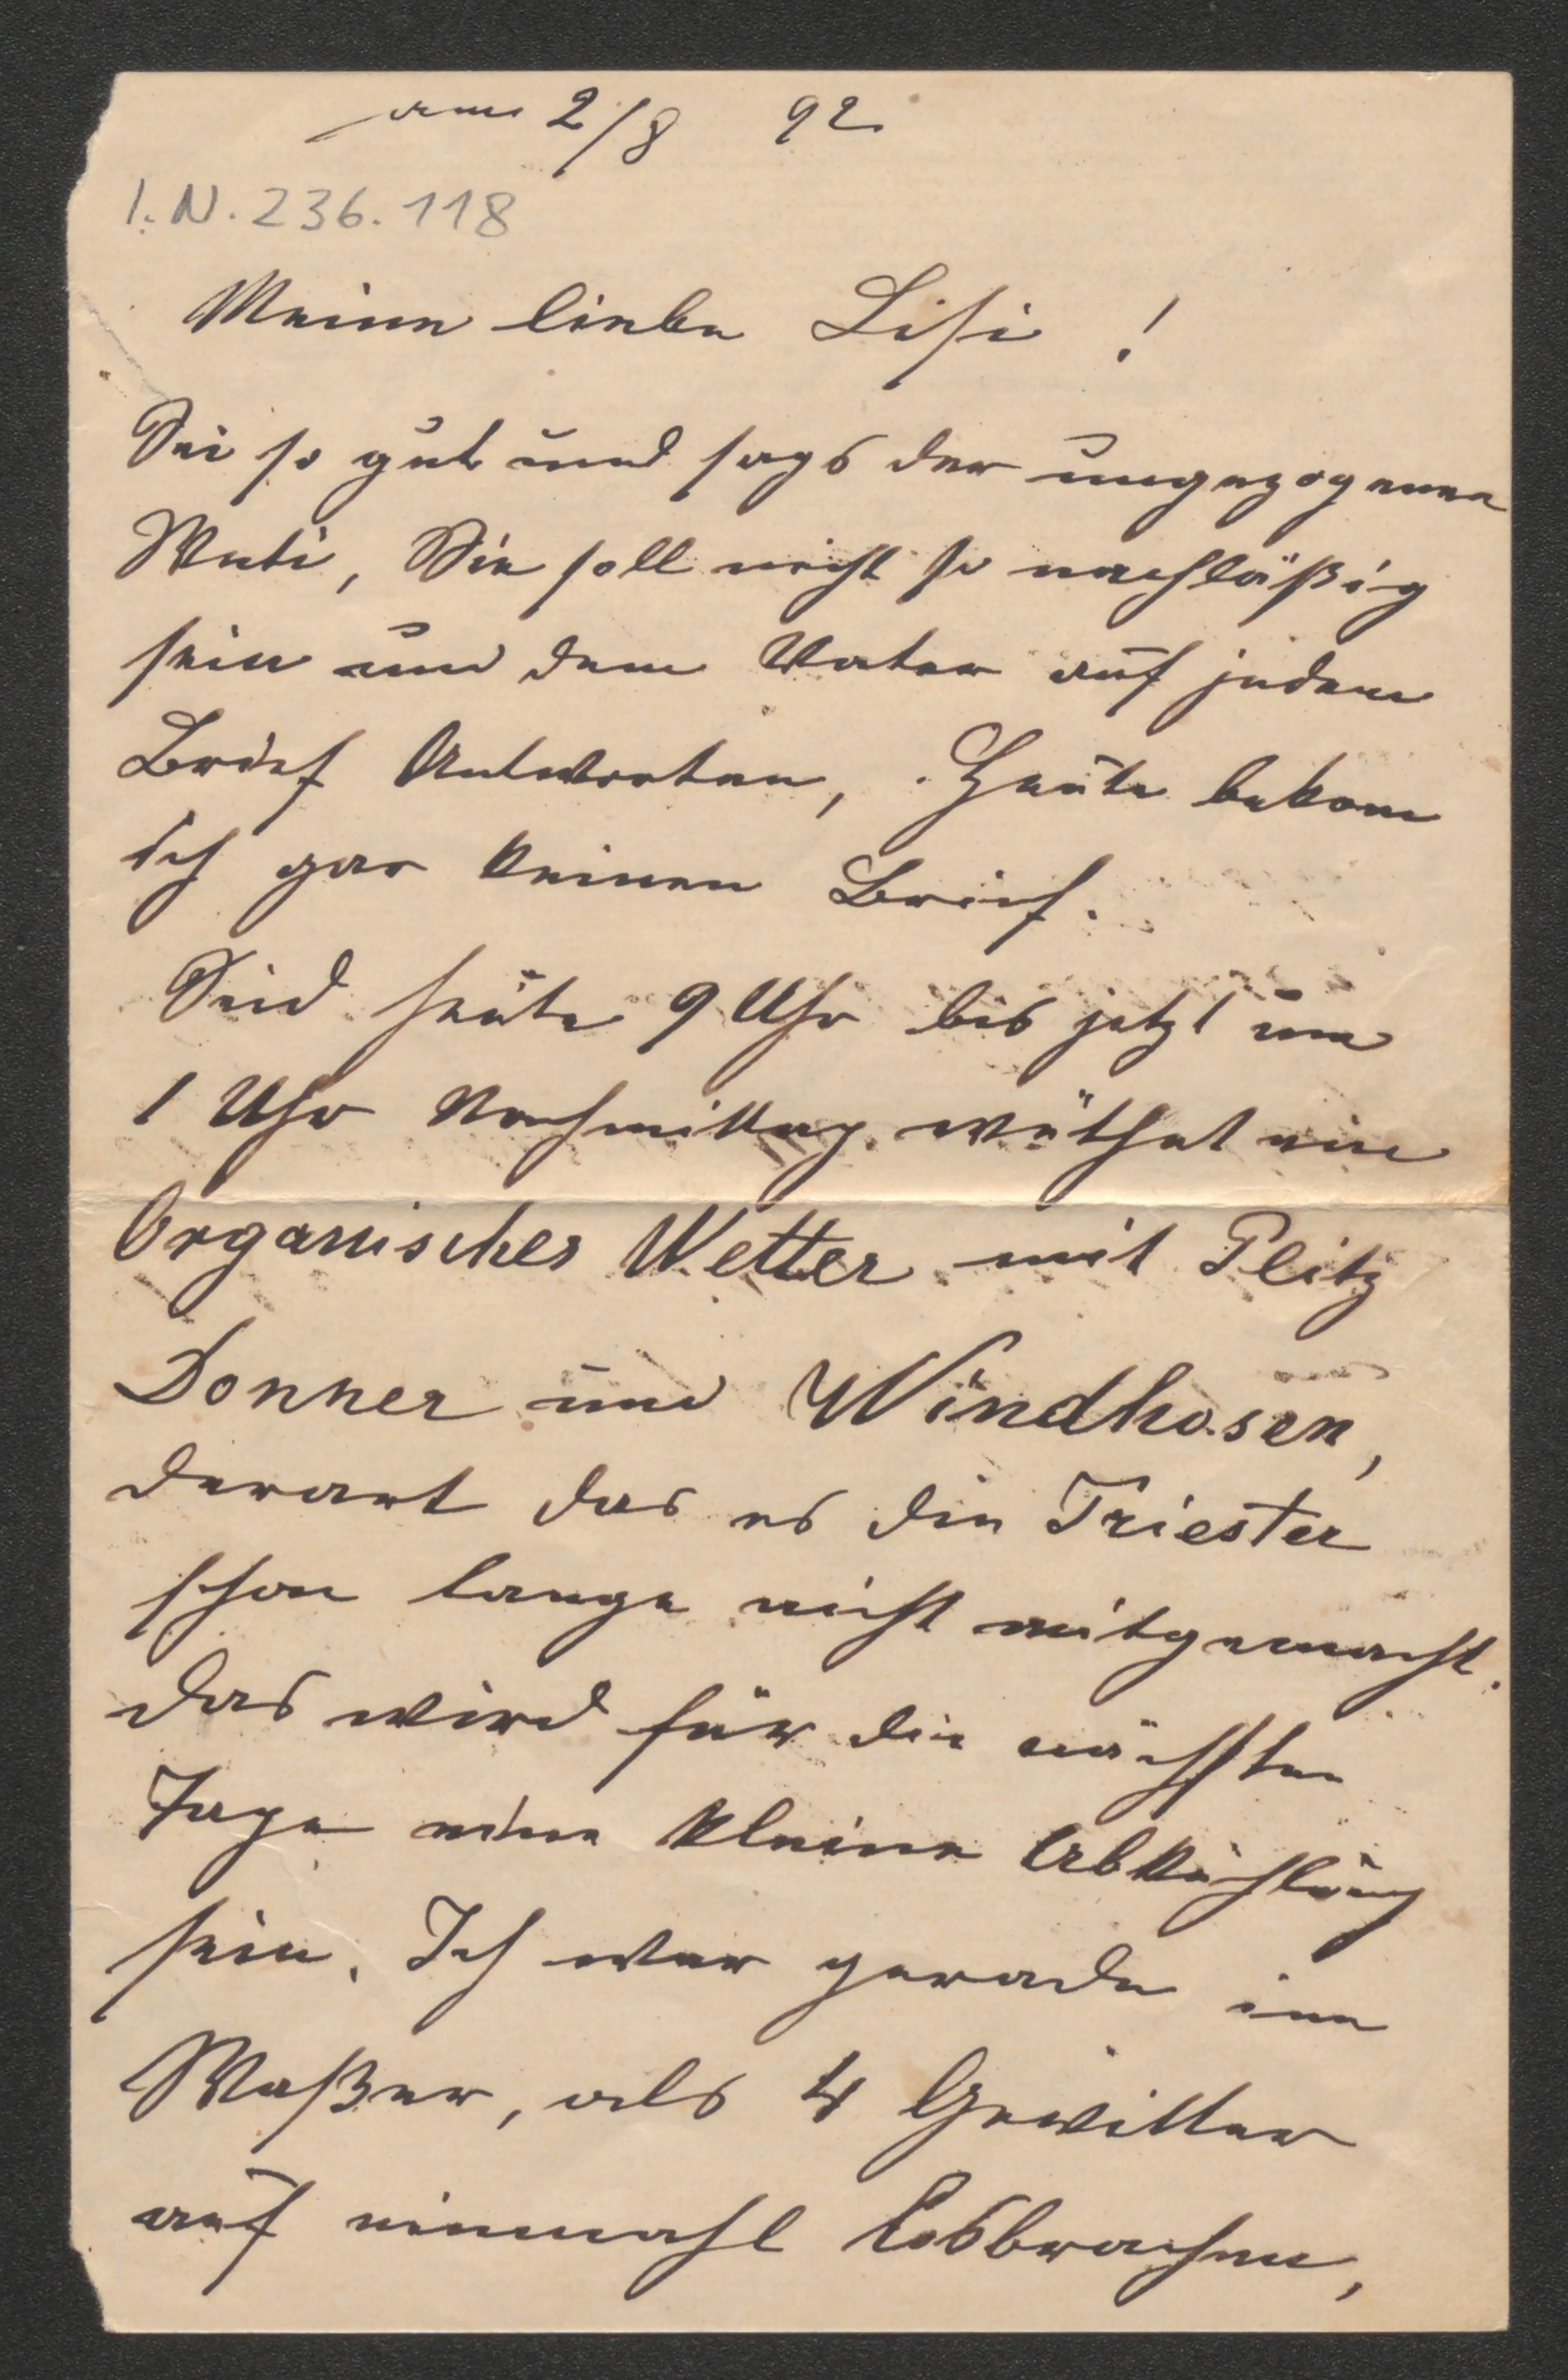 am 2/8 92
I.N. 236.118
Meine liebe Lisi !
Sei so gut und sags der ungezogenen
Muti, Sie soll nicht so nachläßig
sein und dem Vater auf jeden
Brief Antworten, Heute bekam
ich gar keinen Brief.
Seid heute 9 Uhr bis jetzt um
1 Uhr Nachmittag wüthet ein
Organisches Wetter mit Plitz
Donner und Windhosen,
derart das es die Triester
schon lange nicht mitgemacht.
das wird für die nächsten
Tage eine kleine Abkühlung
sein. Ich war gerade im
Waßer, als 4 Gewitter
auf einmahl Losbrachen,